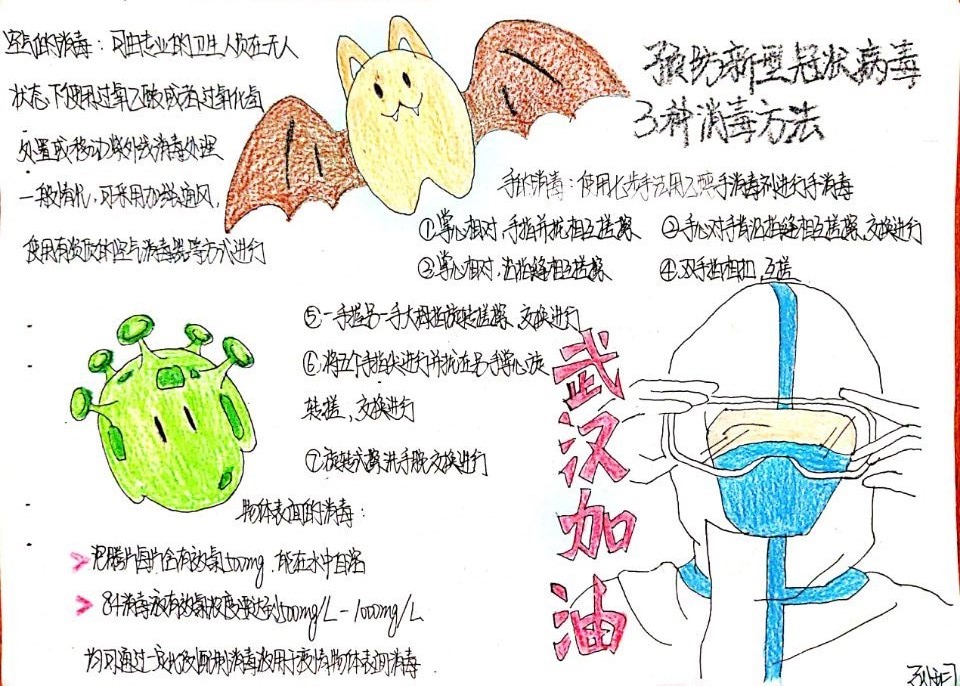 预防新型冠状病毒
3种消毒方法
空气的消毒：可由专业的卫生人员在无人
状态下使用过氧乙酸或者过氧化氢
处置或移动紫外线消毒处理
一般情况，可采用加强通风，
使用有资质的空气消毒器等方式进行
手的消毒：使用七步手法用乙醇手消毒剂进行手消毒
①掌心相对，手指并拢相互搓擦 ②手心对手背沿指缝相互搓擦，交换进行
③掌心相对，沿指缝相互搓擦 ④双手指相扣，互搓
⑤一手握另一手大拇指旋转搓擦，交换进行
⑥将五个手指尖进行并拢在另一手掌心旋
转搓，交换进行
⑦旋转式擦洗手腕，交换进行
武汉加油
物体表面的消毒：
泡腾片每片含有效氯500mg，能在水中自溶
84消毒液有效氯浓度要达到500mg/L-1000mg/L
均可通过一定比例配制消毒液用于疫情物体表面消毒